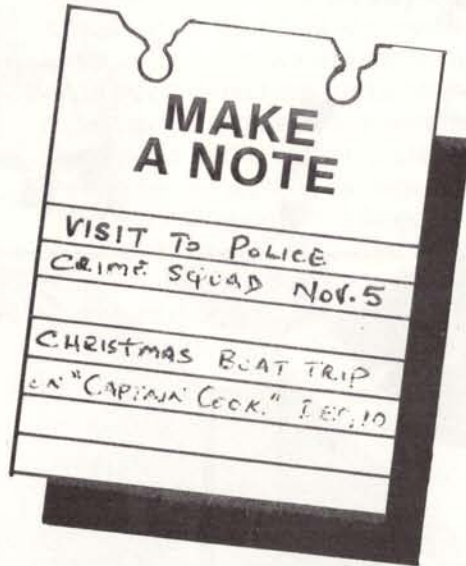 MAKE
A NOTE
VISIT TO POLICE
CRIME SQUAD NOV. 5
CHRISTMAS BOAT TRIP
ON "CAPTAIN COOK." DEC. 10